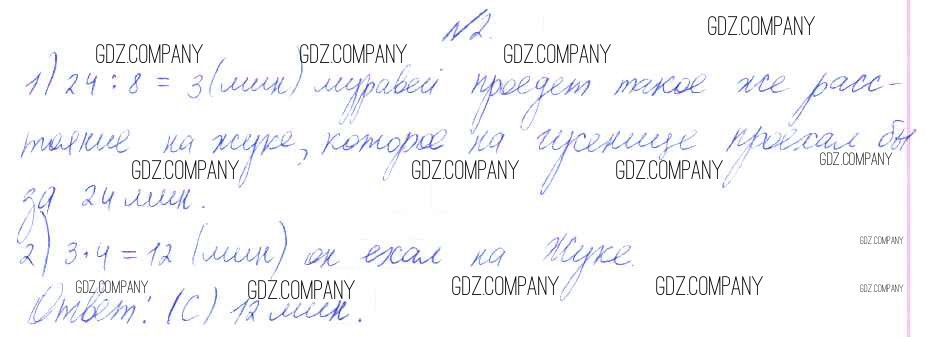 №2.
GDZ.COMPANY
GDZ.COMPANY GDZ.COMPANY GDZ.COMPANY
1) 24 : 8 = 3 (мин) муравей проедет такое же расс-
тояние на жуке, которое на гусенице проехал бы
GDZ.COMPANY GDZ.COMPANY GDZ.COMPANY GDZ.COMPANY
за 24 мин.
2) 3 · 4 = 12 (мин) он ехал на жуке.
GDZ.COMPANY
GDZ.COMPANY GDZ.COMPANY GDZ.COMPANY GDZ.COMPANY GDZ.COMPANY
Ответ: (C) 12 мин.